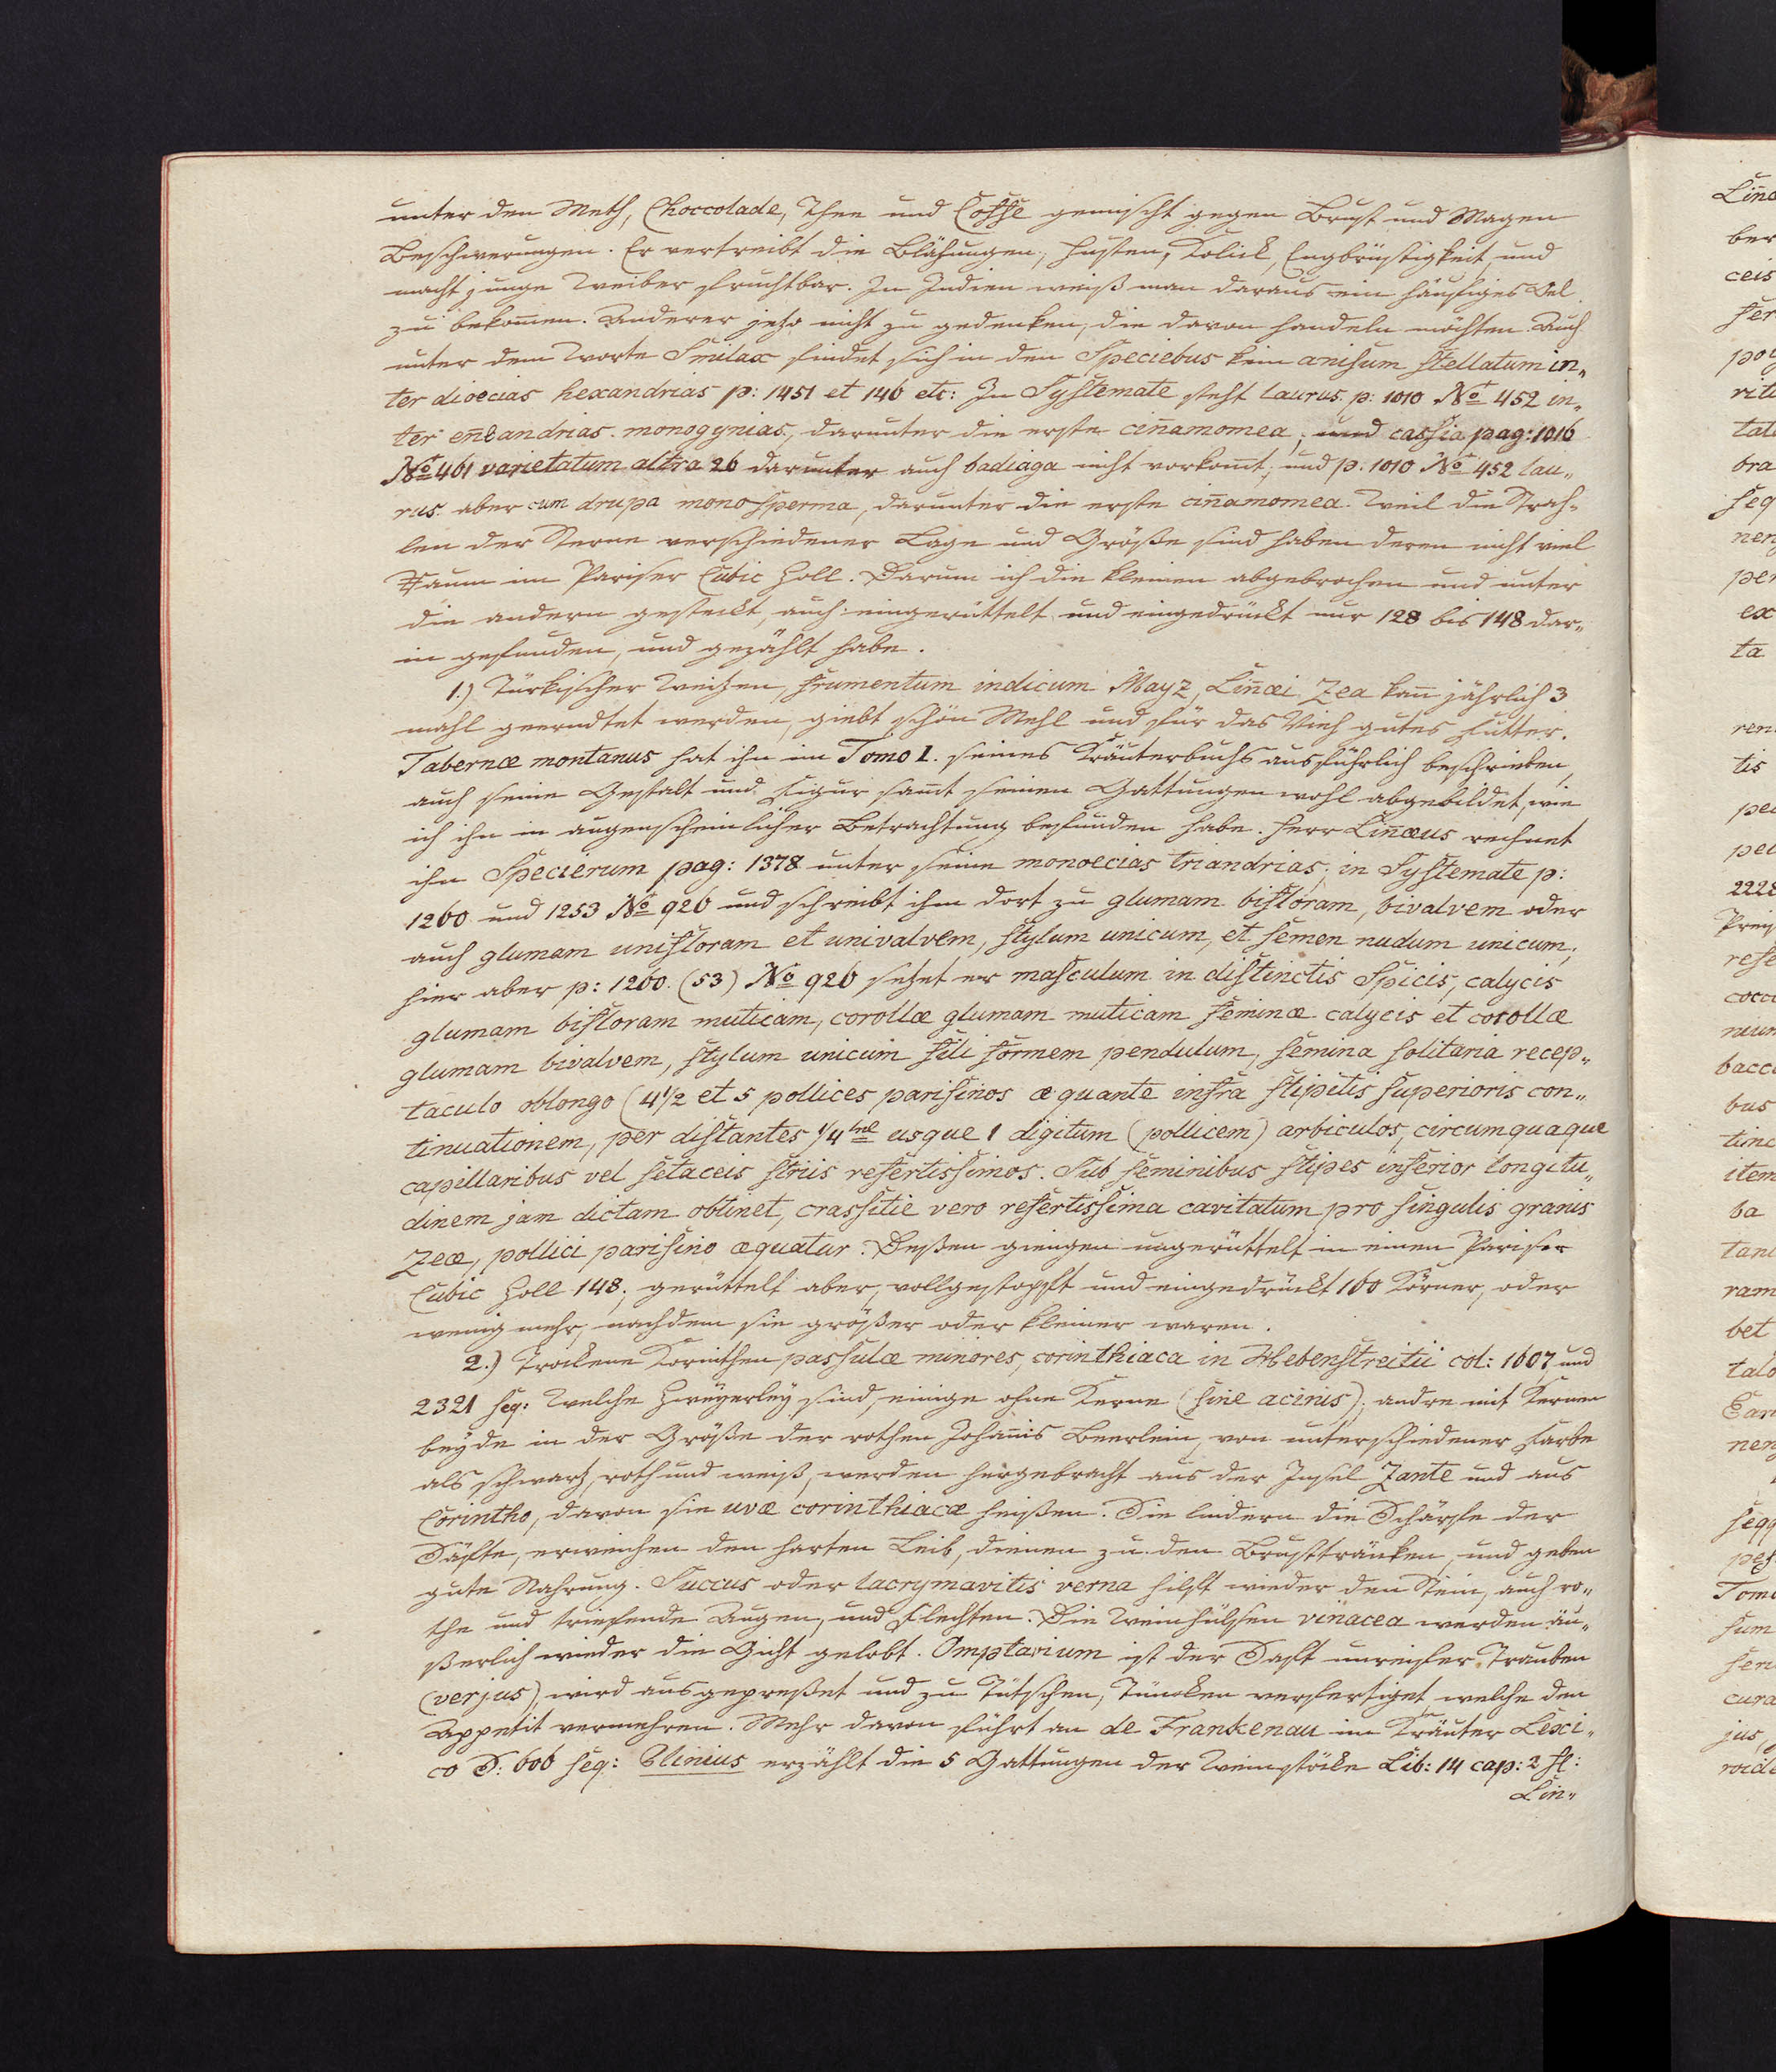 unter den Meth, Choccolade, Thee und Coffe gemischt gegen Brust und Magen
Beschwerungen. Er vertreibt die Blähungen, Husten, Kolick, Engbrüstigkeit und
macht junge Weiber fruchtbar. In Indien weiß man daraus ein häufiges Oel
zu bekom̄en. Anderer jetzo nicht zu gedenken, die davon handeln möchten. Auch
unter dem Worte Smilax findet sich in den Speciebus kein anisum stellatum in„
ter dioecias hexandrias p: 1451 et 146 etc: In Systemate steht laurus. p: 1010 No 452 in„
ter en̄eandrias. monogynias., darunter die erste cin̄amomea; und cassia pag: 1016
No 461 varietatum altra 26 darunter auch badiaga nicht vorkom̄t; und p. 1010 No 452 lau„
rus. aber cum drupa monosperma, darunter die erste cin̄amomea. Weil die Strah„
len der Sterne verschiedener Lage und Größe sind haben deren nicht viel
Raum im Pariser Cubic Zoll. Darum ich die kleinen abgebrochen und unter
die andern gesteckt, auch eingerüttelt und eingedrückt nur 128 bis 148 dar„
in gefunden, und gezählt habe.
1.) Türkischer Weitzen, frumentum indicum Mayz, Lin̄æi Zea kan̄ jährlich 3
mahl geerndtet werden, giebt schön Mehl und für das Vieh gutes Futter.
Tabernæ montanus hat ihn im Tomo I. seines Kräuterbuchs ausführlich beschrieben,
auch seine Gestalt und Figur sam̄t seinen Gattungen wohl abgebildet, wie
ich ihn in augenscheinlicher Betrachtung befunden habe. Herr Lin̄æus rechnet
ihn Specierum pag: 1378 unter seine monoecias triandrias; in Systemate p:
1260 und 1253 No 926 und schreibt ihm dort zu glumam bifloram, bivalvem oder
auch glumam unifloram et univalvem, stylum unicum, et semen nudum unicum;
hier aber p: 1260. (53) No 926 setzet er masculum in distinctis Spicis, calycis
glumam bifloram muticam, corollæ glumam muticam feminæ calycis et corollæ
glumam bivalvem, stylum unicum fili formem pendulum, semina solitaria recep„
taculo oblongo (4½ et 5 pollices parisinos æquante infra stipitis superioris con„
tinuationem, per distantes ¼ usque 1 digitum (pollicem) arbiculos, circumquaque
capillaribus vel setaceis striis refertissimos. Sub seminibus stipes inferior longitu„
dinem jam dictam obtinet, crassitie vero refertissima cavitatum pro singulis granis
Zeæ, pollici parisino æquatur. Deßen giengen ungerüttelt in einen Pariser
Cubic Zoll 148; gerüttelt aber, vollgestopft und eingedrückt 160 Körner, oder
wenig mehr, nachdem sie größer oder kleiner waren.
2.) Trockene Korinthen, passulæ minores, corinthiaca in Hebenstreitii col: 1607 und
2321 seq: Welche Zweyerley sind, einige ohne Kerne (sine acinis); andre mit Kernen
beyde in der Größe der rothen Johan̄is Beerlein, von unterschiedener Farbe
als schwartz, roth und weiß, werden hergebracht aus der Insel Zante und aus
Corintho, davon sie uvæ corinthiacæ heißen. Sie lindern die Schärfe der
Säfte, erweichen den harten Leib, dienen zu den Brusttränken, und geben
gute Nahrung. Succus oder lacrymavitis verna hilft wieder den Stein, auch ro„
the und triefende Augen, und Flechten. Die Weinhülsen vin̄acea werden äu„
ßerlich wieder die Gicht gelobt. Omptarium ist der Saft unreifer Trauben
(verjus), wird ausgepreßet und zu Tütschen, Tuncken verfertiget, welche den
Appetit vermehren. Mehr davon führt an de Frankenau im Kräuter Lexi„
co S: 606 seq: Plinius erzählt die 5 Gattungen der Weinstöcke Lib: 14 cap: 2 sq:
Lin„